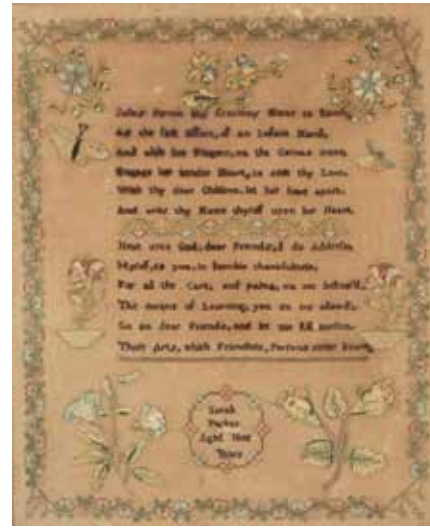 Jesus Permit thy Gracious Name to stand,
As the first Efforts, of an Infants Hand,
And while her Fingers, on the Canvas move,
Engage her tender Heart, to seek thy Love,
With thy dear Children, let her have a part,
And write thy Name thyself upon her Heart.
Next unto God, dear Friends, I do Address,
Myself, to you, in humble thankfulness,
For all the Care, and pains, on me bestow'd,
The means of Learning, you on me allow'd,
Go on dear Friends, and let me Still
Those Arts, which Friendless, Persons never known,
Sarah
Parker
Aged Nine
Years